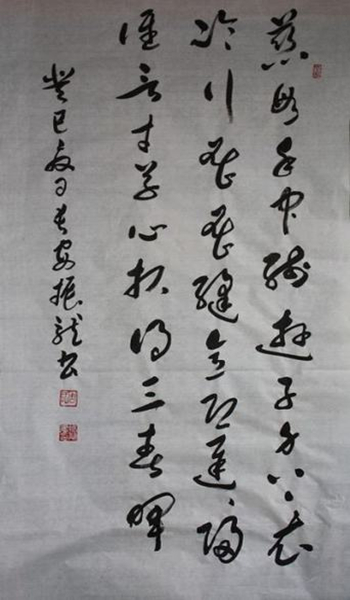 慈母手中線遊子身上衣
臨行密密縫意恐遲遲歸
誰言寸草心報得三春暉
癸巳夏日安振龍書